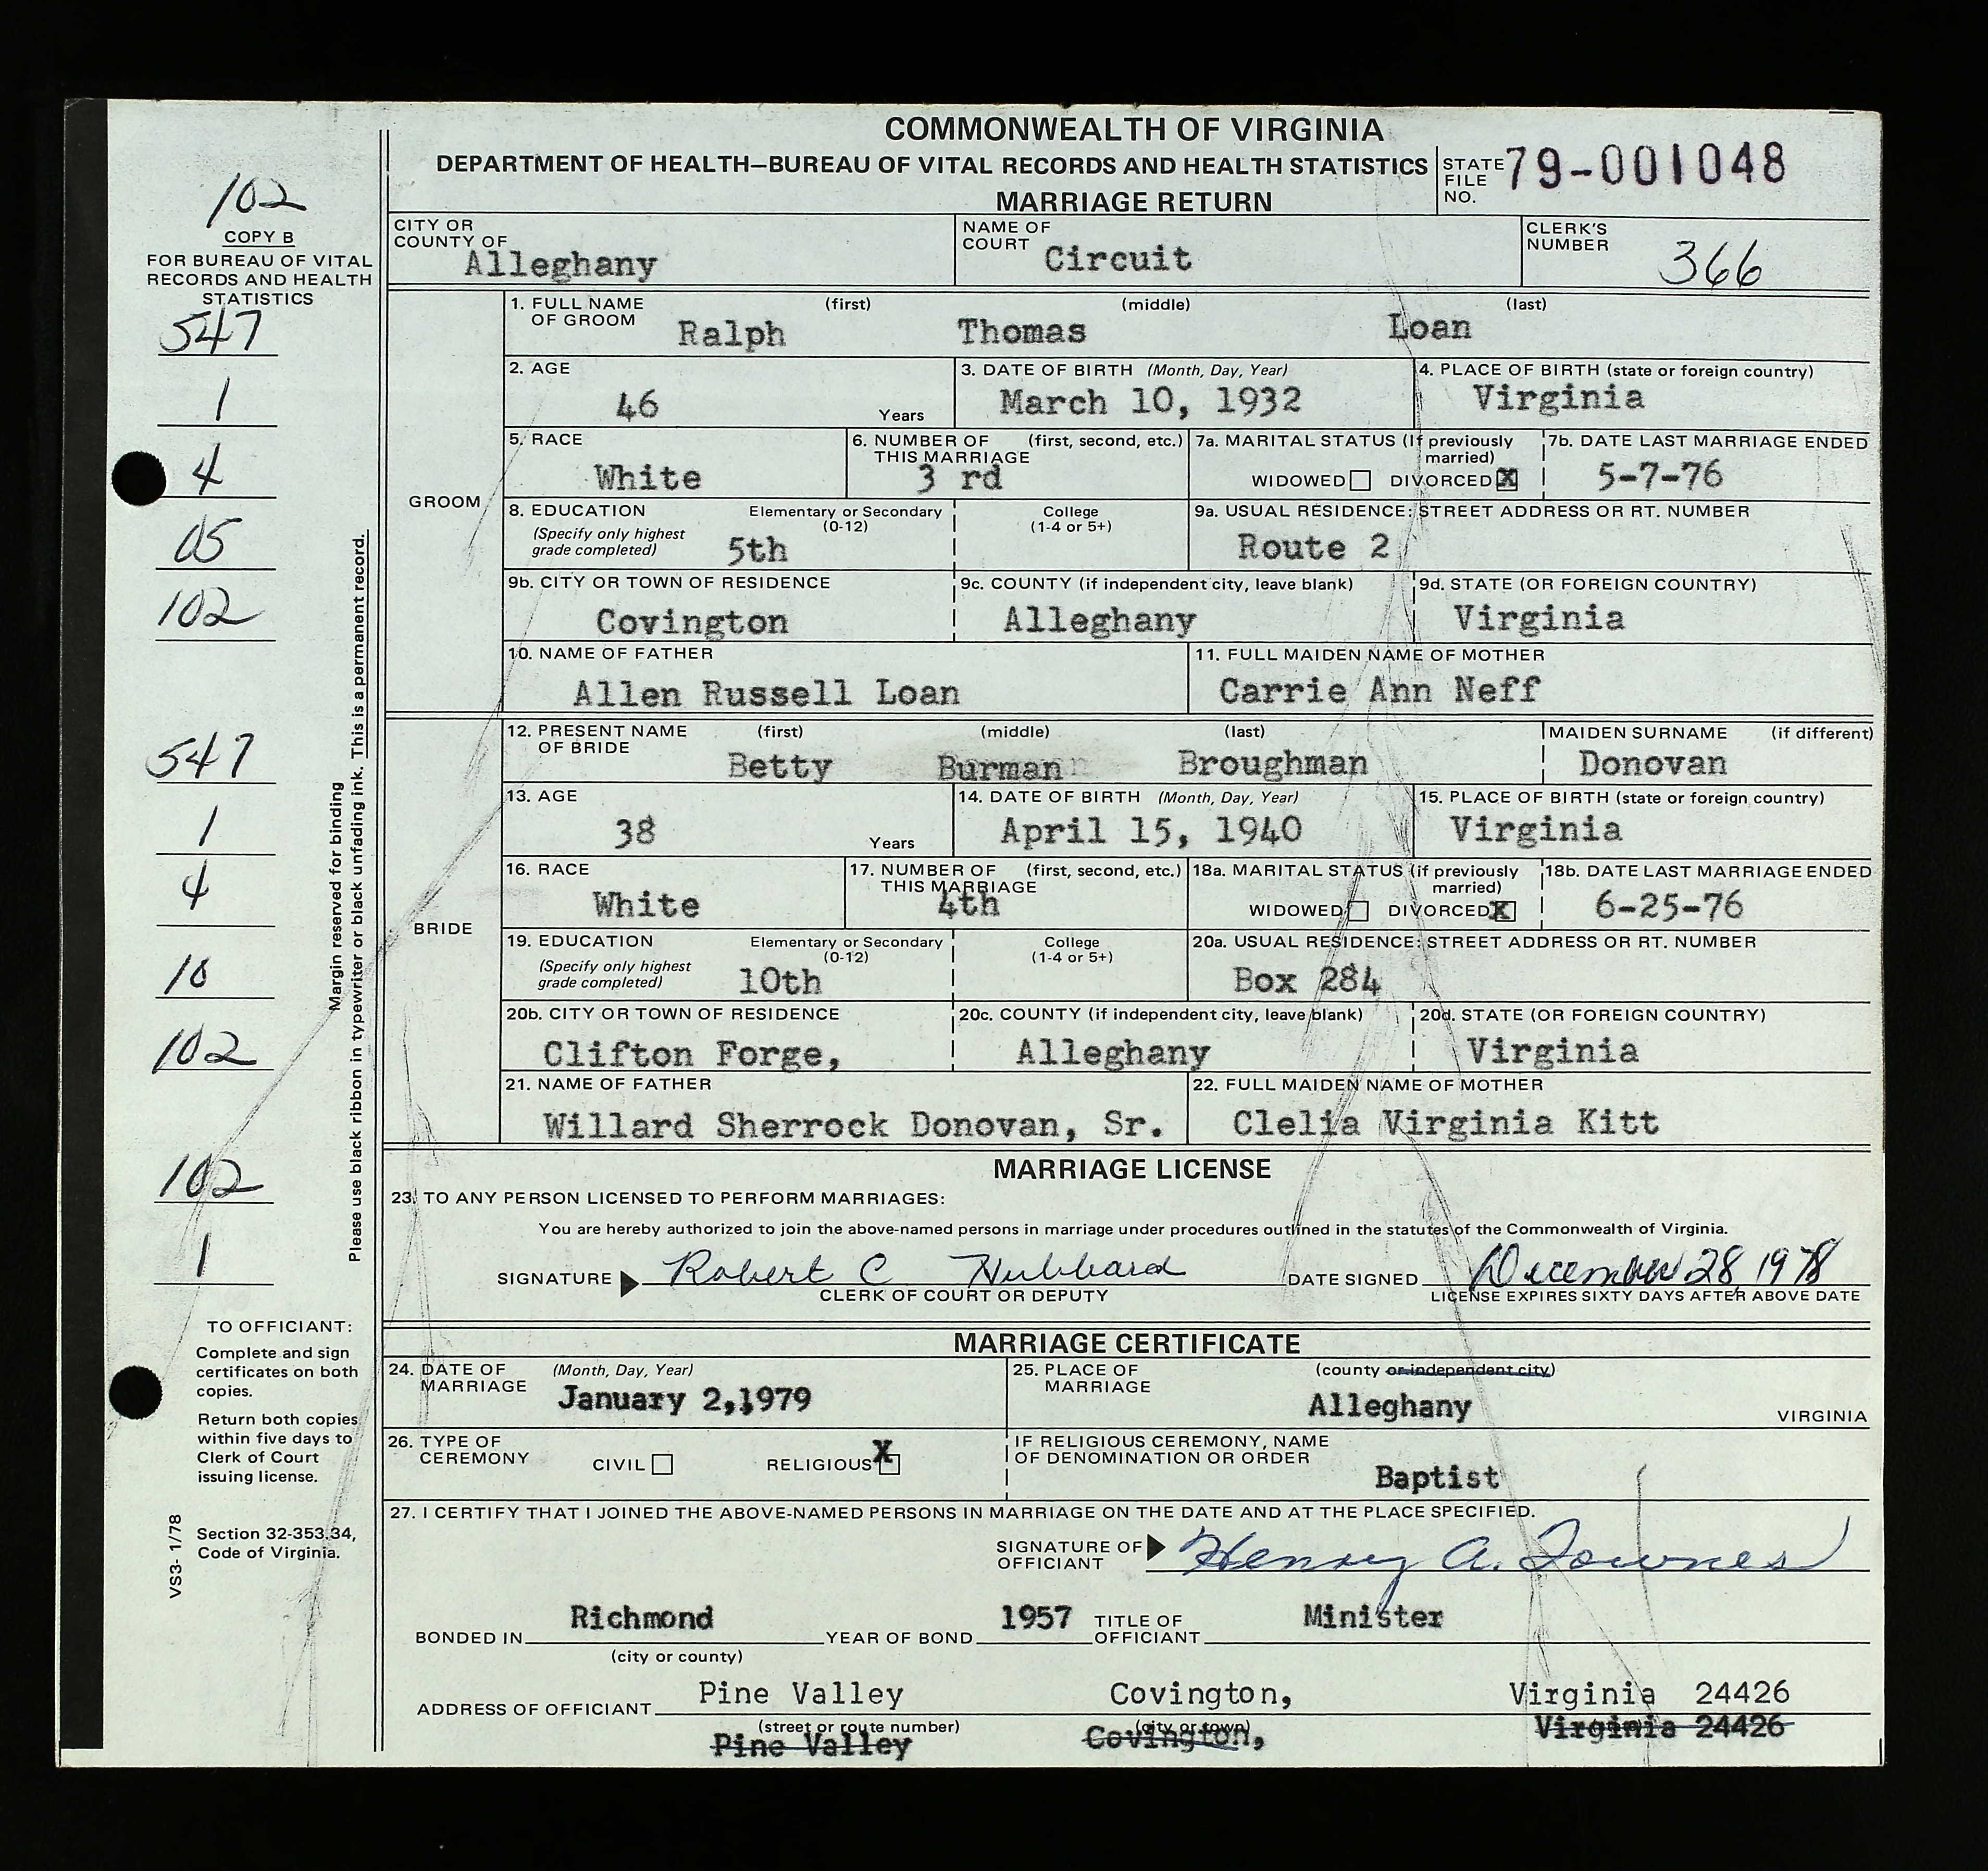 COMMONWEALTH OF VIRGINIA
DEPARTMENT OF HEALTH—BUREAU OF VITAL RECORDS AND HEALTH STATISTICS
MARRIAGE RETURN
STATE FILE NO. 79-001048
102
COPY B
FOR BUREAU OF VITAL
RECORDS AND HEALTH
STATISTICS
547
1
4
05
102
547
1
4
10
102
102
1
Margin reserved for binding
Please use black ribbon in typewriter or black unfading ink. This is a permanent record.
TO OFFICIANT:
Complete and sign
certificates on both
copies.
Return both copies
within five days to
Clerk of Court
issuing license.
Section 32-353.34,
Code of Virginia.
VS3- 1/78
CITY OR COUNTY OF Alleghany NAME OF COURT Circuit CLERK'S NUMBER 366
GROOM
1. FULL NAME OF GROOM (first) (middle) (last)
Ralph Thomas Loan
2. AGE 46 Years 3. DATE OF BIRTH (Month, Day, Year) March 10, 1932 4. PLACE OF BIRTH (state or foreign country) Virginia
5. RACE White 6. NUMBER OF THIS MARRIAGE (first, second, etc.) 3 rd 7a. MARITAL STATUS (If previously married) WIDOWED DIVORCED X 7b. DATE LAST MARRIAGE ENDED 5-7-76
8. EDUCATION (Specify only highest grade completed) Elementary or Secondary (0-12) 5th College (1-4 or 5+) 9a. USUAL RESIDENCE: STREET ADDRESS OR RT. NUMBER Route 2
9b. CITY OR TOWN OF RESIDENCE Covington 9c. COUNTY (if independent city, leave blank) Alleghany 9d. STATE (OR FOREIGN COUNTRY) Virginia
10. NAME OF FATHER Allen Russell Loan 11. FULL MAIDEN NAME OF MOTHER Carrie Ann Neff
BRIDE
12. PRESENT NAME OF BRIDE (first) (middle) (last) MAIDEN SURNAME (if different)
Betty Burman Broughman Donovan
13. AGE 38 Years 14. DATE OF BIRTH (Month, Day, Year) April 15, 1940 15. PLACE OF BIRTH (state or foreign country) Virginia
16. RACE White 17. NUMBER OF THIS MARRIAGE (first, second, etc.) 4th 18a. MARITAL STATUS (if previously married) WIDOWED DIVORCED X 18b. DATE LAST MARRIAGE ENDED 6-25-76
19. EDUCATION (Specify only highest grade completed) Elementary or Secondary (0-12) 10th College (1-4 or 5+) 20a. USUAL RESIDENCE: STREET ADDRESS OR RT. NUMBER Box 284
20b. CITY OR TOWN OF RESIDENCE Clifton Forge, 20c. COUNTY (if independent city, leave blank) Alleghany 20d. STATE (OR FOREIGN COUNTRY) Virginia
21. NAME OF FATHER Willard Sherrock Donovan, Sr. 22. FULL MAIDEN NAME OF MOTHER Clelia Virginia Kitt
MARRIAGE LICENSE
23. TO ANY PERSON LICENSED TO PERFORM MARRIAGES:
You are hereby authorized to join the above-named persons in marriage under procedures outlined in the statutes of the Commonwealth of Virginia.
SIGNATURE Robert C Hubbard DATE SIGNED December 28, 1978
CLERK OF COURT OR DEPUTY LICENSE EXPIRES SIXTY DAYS AFTER ABOVE DATE
MARRIAGE CERTIFICATE
24. DATE OF MARRIAGE (Month, Day, Year) January 2, 1979 25. PLACE OF MARRIAGE (county or independent city) Alleghany VIRGINIA
26. TYPE OF CEREMONY CIVIL RELIGIOUS X IF RELIGIOUS CEREMONY, NAME OF DENOMINATION OR ORDER Baptist
27. I CERTIFY THAT I JOINED THE ABOVE-NAMED PERSONS IN MARRIAGE ON THE DATE AND AT THE PLACE SPECIFIED.
SIGNATURE OF OFFICIANT Henry A. Townes
BONDED IN Richmond YEAR OF BOND 1957 TITLE OF OFFICIANT Minister
(city or county)
ADDRESS OF OFFICIANT Pine Valley Covington, Virginia 24426
(street or route number) (city or town)
Pine Valley Covington, Virginia 24426